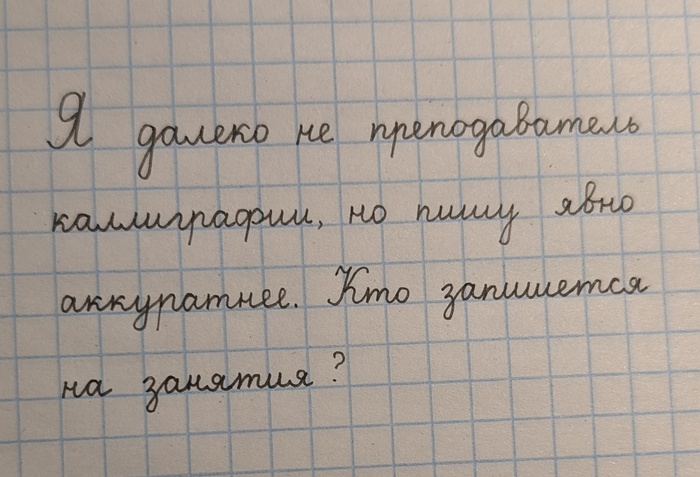 Я далеко не преподаватель
каллиграфии, но пишу явно
аккуратнее. Кто запишется
на занятия?